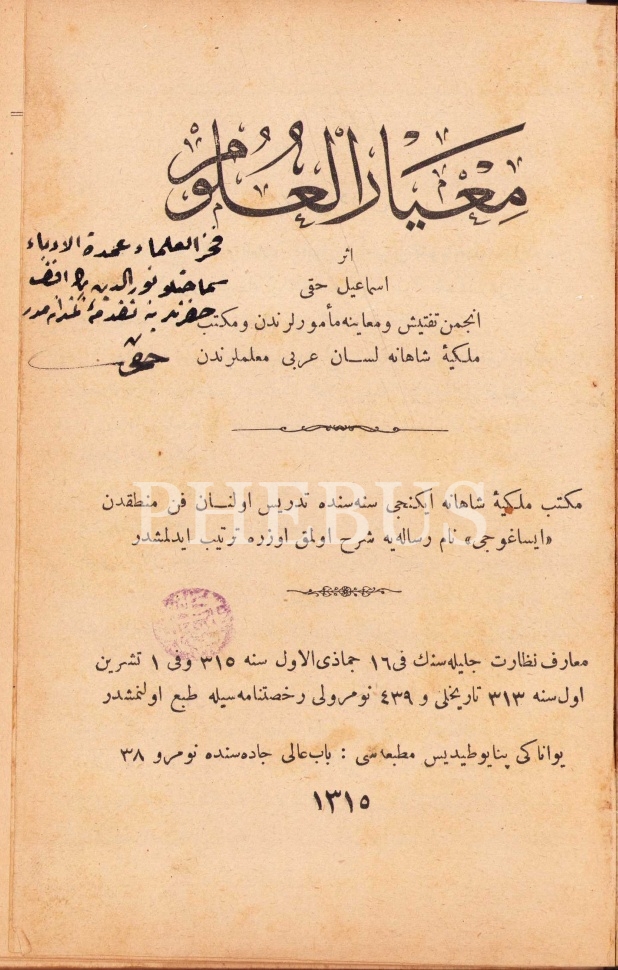 معيار العلوم
اثر
اسماعيل حقى
انجمن تفتيش ومعاينه مأمورلرندن ومكتب
ملكيۀ شاهانه لسان عربى معلملرندن
فخر العلماء عمدة الادباء
سماحتلو نور الدين
حضرتلرينه تقدمۀ
حقى
مكتب ملكيۀ شاهانه ايكنجى سنه سنده تدريس اولنان فن منطقدن
«ايساغوجى» نام رساله يه شرح اولمق اوزره ترتيب ايدلمشدر
PHEBUS
معارف نظارت جليله سنك فى ١٦ جماذى الاول سنه ٣١٥ وفى ١ تشرين
اول سنه ٣١٣ تاريخلى و ٤٣٩ نومرولى رخصتنامه سيله طبع اولنمشدر
يواناكى پنايوطيديس مطبعه سى : باب عالى جاده سنده نومرو ٣٨
١٣١٥